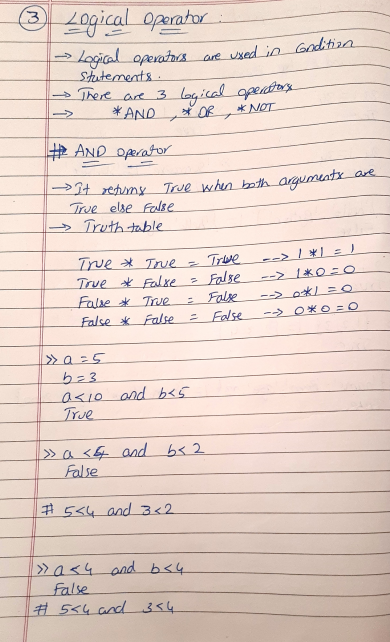 ③ Logical Operator :
→ Logical operators are used in Condition
Statements.
→ There are 3 logical operators
→ *AND , * OR , * NOT
# AND operator
→ It returns True when both arguments are
True else False
→ Truth table
True * True = True --> 1*1 = 1
True * False = False --> 1*0=0
False * True = False --> 0*1=0
False * False = False --> 0*0=0
>> a = 5
b = 3
a<10 and b<5
True
>> a <4 and b< 2
False
# 5<4 and 3<2
>> a<4 and b<4
False
# 5<4 and 3<4